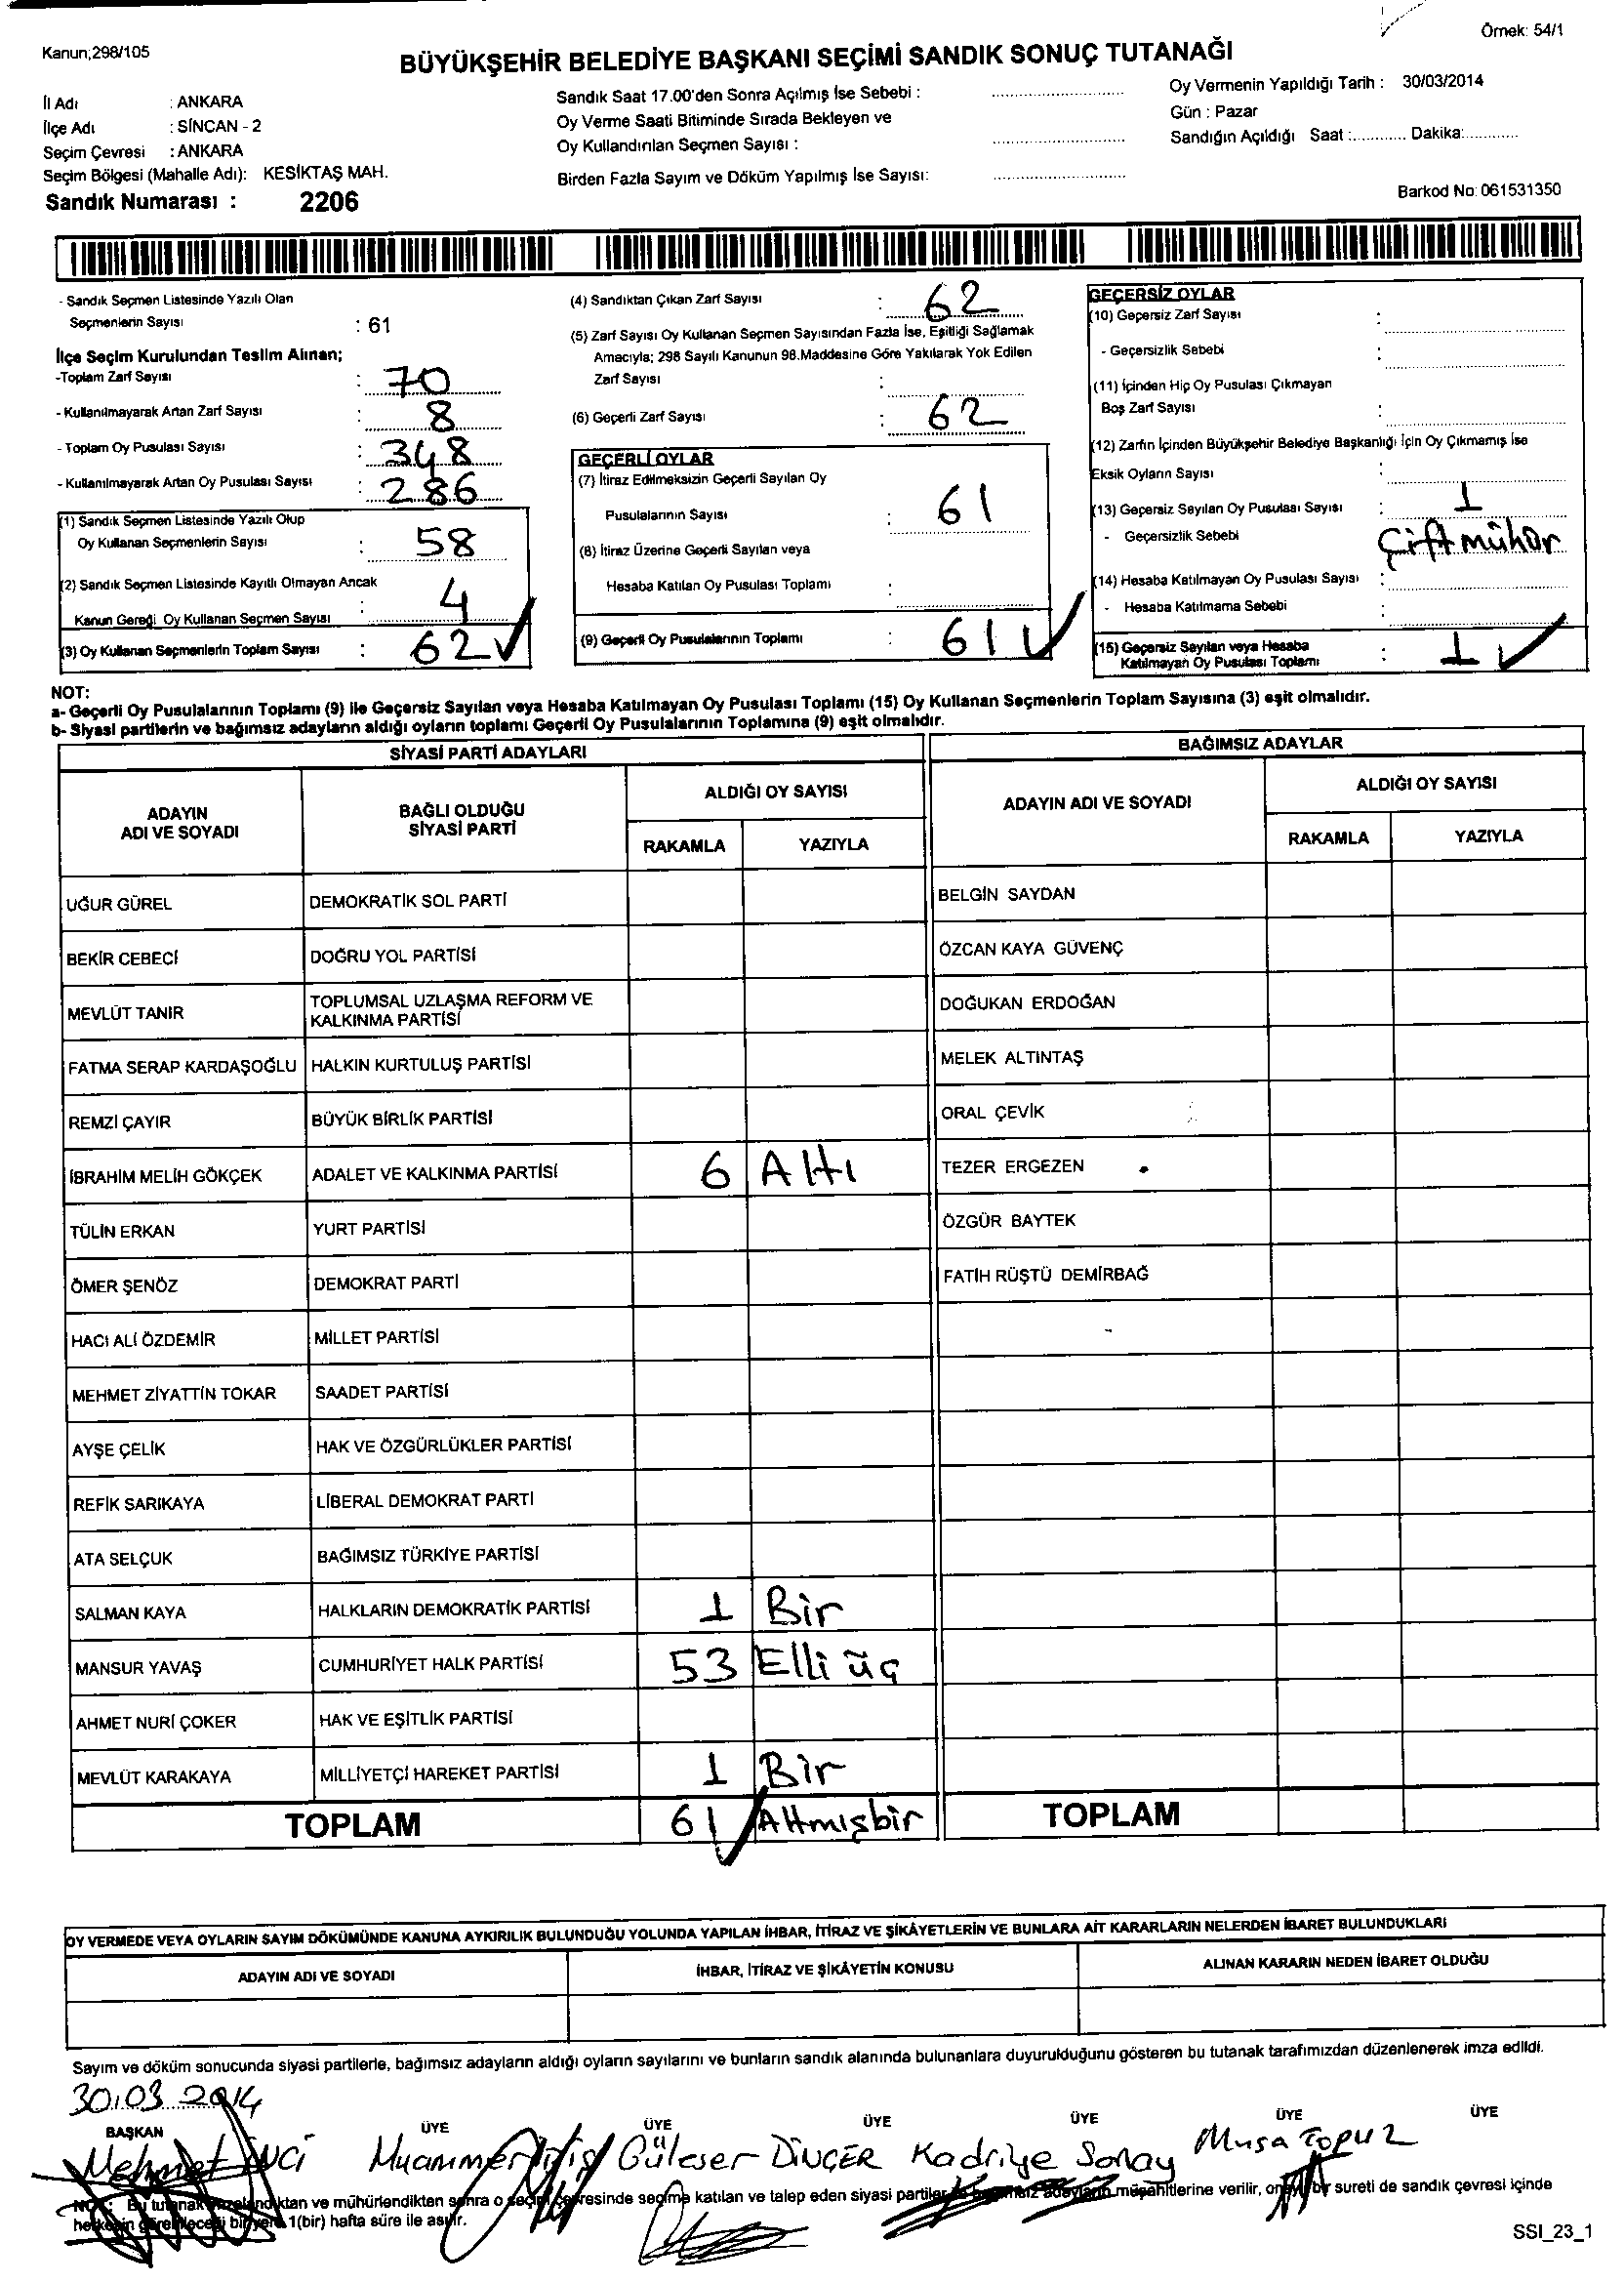 Örnek: 54/1
Kanun;298/105
BÜYÜKŞEHİR BELEDİYE BAŞKANI SEÇİMİ SANDIK SONUÇ TUTANAĞI
İl Adı : ANKARA
İlçe Adı : SİNCAN - 2
Seçim Çevresi : ANKARA
Seçim Bölgesi (Mahalle Adı): KESİKTAŞ MAH.
Sandık Numarası : 2206
Sandık Saat 17.00'den Sonra Açılmış İse Sebebi :
Oy Verme Saati Bitiminde Sırada Bekleyen ve
Oy Kullandırılan Seçmen Sayısı :
Birden Fazla Sayım ve Döküm Yapılmış İse Sayısı:
Oy Vermenin Yapıldığı Tarih : 30/03/2014
Gün : Pazar
Sandığın Açıldığı Saat :............ Dakika:............
Barkod No: 061531350
- Sandık Seçmen Listesinde Yazılı Olan
Seçmenlerin Sayısı : 61
İlçe Seçim Kurulundan Teslim Alınan;
-Toplam Zarf Sayısı : 70
- Kullanılmayarak Artan Zarf Sayısı : 8
- Toplam Oy Pusulası Sayısı : 348
- Kullanılmayarak Artan Oy Pusulası Sayısı : 286
(1) Sandık Seçmen Listesinde Yazılı Olup
Oy Kullanan Seçmenlerin Sayısı : 58
(2) Sandık Seçmen Listesinde Kayıtlı Olmayan Ancak
Kanun Gereği Oy Kullanan Seçmen Sayısı : 4
(3) Oy Kullanan Seçmenlerin Toplam Sayısı : 62
(4) Sandıktan Çıkan Zarf Sayısı : 62
(5) Zarf Sayısı Oy Kullanan Seçmen Sayısından Fazla İse, Eşitliği Sağlamak
Amacıyla; 298 Sayılı Kanunun 98.Maddesine Göre Yakılarak Yok Edilen
Zarf Sayısı :
(6) Geçerli Zarf Sayısı : 62
GEÇERLİ OYLAR
(7) İtiraz Edilmeksizin Geçerli Sayılan Oy
Pusulalarının Sayısı : 61
(8) İtiraz Üzerine Geçerli Sayılan veya
Hesaba Katılan Oy Pusulası Toplamı :
(9) Geçerli Oy Pusulalarının Toplamı : 61
GEÇERSİZ OYLAR
(10) Geçersiz Zarf Sayısı :
- Geçersizlik Sebebi :
(11) İçinden Hiç Oy Pusulası Çıkmayan
Boş Zarf Sayısı :
(12) Zarfın İçinden Büyükşehir Belediye Başkanlığı İçin Oy Çıkmamış İse
Eksik Oyların Sayısı :
(13) Geçersiz Sayılan Oy Pusulası Sayısı : 1
- Geçersizlik Sebebi : Çift mühür
(14) Hesaba Katılmayan Oy Pusulası Sayısı :
- Hesaba Katılmama Sebebi :
(15) Geçersiz Sayılan veya Hesaba
Katılmayan Oy Pusulası Toplamı : 1
NOT:
a- Geçerli Oy Pusulalarının Toplamı (9) ile Geçersiz Sayılan veya Hesaba Katılmayan Oy Pusulası Toplamı (15) Oy Kullanan Seçmenlerin Toplam Sayısına (3) eşit olmalıdır.
b- Siyasi partilerin ve bağımsız adayların aldığı oyların toplamı Geçerli Oy Pusulalarının Toplamına (9) eşit olmalıdır.
SİYASİ PARTİ ADAYLARI
ADAYIN ADI VE SOYADI
BAĞLI OLDUĞU SİYASİ PARTİ
ALDIĞI OY SAYISI
RAKAMLA YAZIYLA
UĞUR GÜREL DEMOKRATİK SOL PARTİ
BEKİR CEBECİ DOĞRU YOL PARTİSİ
MEVLÜT TANIR TOPLUMSAL UZLAŞMA REFORM VE
KALKINMA PARTİSİ
FATMA SERAP KARDAŞOĞLU HALKIN KURTULUŞ PARTİSİ
REMZİ ÇAYIR BÜYÜK BİRLİK PARTİSİ
İBRAHİM MELİH GÖKÇEK ADALET VE KALKINMA PARTİSİ 6 Altı
TÜLİN ERKAN YURT PARTİSİ
ÖMER ŞENÖZ DEMOKRAT PARTİ
HACI ALİ ÖZDEMİR MİLLET PARTİSİ
MEHMET ZİYATTİN TOKAR SAADET PARTİSİ
AYŞE ÇELİK HAK VE ÖZGÜRLÜKLER PARTİSİ
REFİK SARIKAYA LİBERAL DEMOKRAT PARTİ
ATA SELÇUK BAĞIMSIZ TÜRKİYE PARTİSİ
SALMAN KAYA HALKLARIN DEMOKRATİK PARTİSİ 1 Bir
MANSUR YAVAŞ CUMHURİYET HALK PARTİSİ 53 Elli üç
AHMET NURİ ÇOKER HAK VE EŞİTLİK PARTİSİ
MEVLÜT KARAKAYA MİLLİYETÇİ HAREKET PARTİSİ 1 Bir
TOPLAM 61 Altmışbir
BAĞIMSIZ ADAYLAR
ADAYIN ADI VE SOYADI
ALDIĞI OY SAYISI
RAKAMLA YAZIYLA
BELGİN SAYDAN
ÖZCAN KAYA GÜVENÇ
DOĞUKAN ERDOĞAN
MELEK ALTINTAŞ
ORAL ÇEVİK
TEZER ERGEZEN
ÖZGÜR BAYTEK
FATİH RÜŞTÜ DEMİRBAĞ
TOPLAM
OY VERMEDE VEYA OYLARIN SAYIM DÖKÜMÜNDE KANUNA AYKIRILIK BULUNDUĞU YOLUNDA YAPILAN İHBAR, İTİRAZ VE ŞİKÂYETLERİN VE BUNLARA AİT KARARLARIN NELERDEN İBARET BULUNDUKLARI
ADAYIN ADI VE SOYADI İHBAR, İTİRAZ VE ŞİKÂYETİN KONUSU ALINAN KARARIN NEDEN İBARET OLDUĞU
Sayım ve döküm sonucunda siyasi partilerle, bağımsız adayların aldığı oyların sayılarını ve bunların sandık alanında bulunanlara duyurulduğunu gösteren bu tutanak tarafımızdan düzenlenerek imza edildi.
30.03.2014
BAŞKAN ÜYE ÜYE ÜYE ÜYE ÜYE ÜYE
Mehmet İNCİ Muammer Güleser DİNÇER Kadriye Musa Topuz
NOT: Bu tutanak ve mühürlendikten sonra o seçim çevresinde seçime katılan ve talep eden siyasi partiler müşahitlerine verilir, bir sureti de sandık çevresi içinde
herkesin görebileceği bir yere 1(bir) hafta süre ile asılır.
SSI_23_1